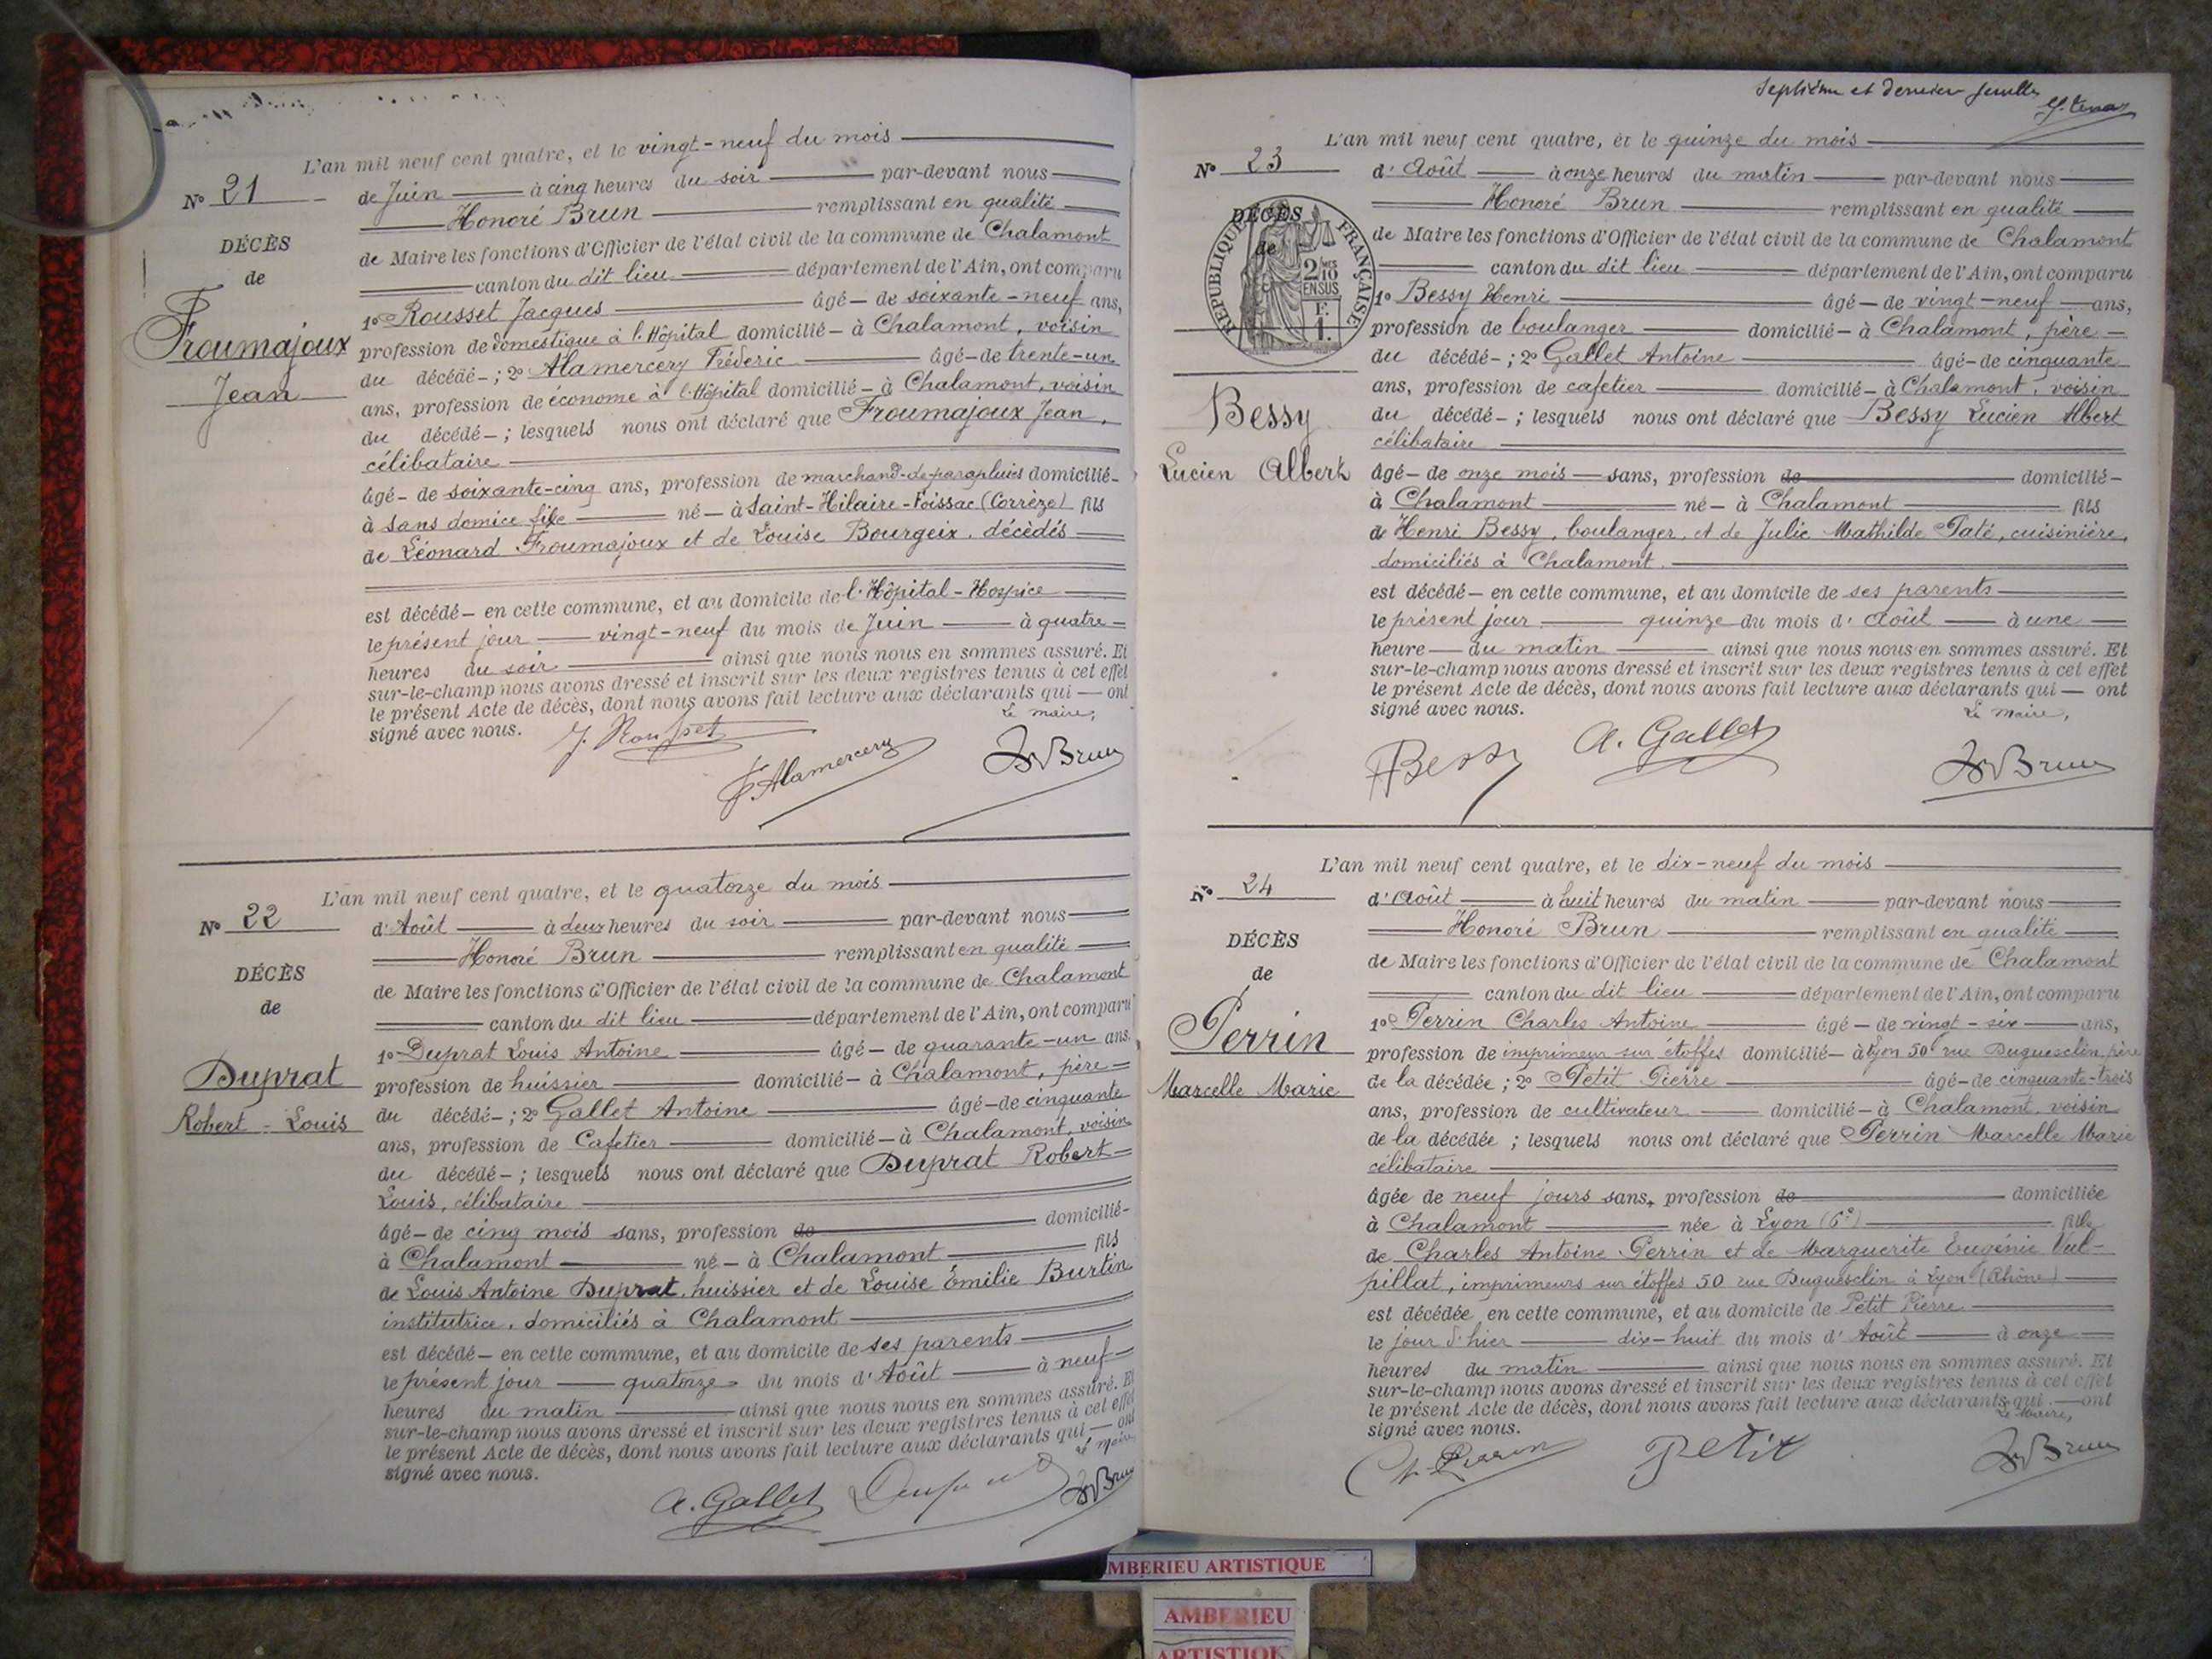 L'an mil neuf cent quatre, et le vingt-neuf du mois
N° 21
de Juin à cinq heures du soir par-devant nous
Honoré Brun remplissant en qualité
DÉCÈS
de Maire les fonctions d'Officier de l'état civil de la commune de Chalamont
de
canton du dit lieu département de l'Ain, ont comparu
Froumajoux
Jean
1° Rousset Jacques âgé de soixante-neuf ans,
profession de domestique à l'Hôpital domicilié à Chalamont, voisin
du décédé ; 2° Alamercery Fréderic âgé de trente-un
ans, profession de économe à l'Hôpital domicilié à Chalamont, voisin
du décédé ; lesquels nous ont déclaré que Froumajoux Jean,
célibataire
âgé de soixante-cinq ans, profession de marchand-de-parapluies domicilié
à sans domice fixe né à Saint-Hilaire-Foissac (Corrèze) fils
de Léonard Froumajoux et de Louise Bourgeix, décèdés
est décédé en cette commune, et au domicile de l'Hôpital-Hospice
le présent jour vingt-neuf du mois de Juin à quatre
heures du soir ainsi que nous nous en sommes assuré. Et
sur-le-champ nous avons dressé et inscrit sur les deux registres tenus à cet effet
le présent Acte de décès, dont nous avons fait lecture aux déclarants qui ont
signé avec nous. Le maire,
J. Rousset
F. Alamercery
H Brun
L'an mil neuf cent quatre, et le quatorze du mois
N° 22
d'Août à deux heures du soir par-devant nous
Honoré Brun remplissant en qualité
DÉCÈS
de Maire les fonctions d'Officier de l'état civil de la commune de Chalamont
de
canton du dit lieu département de l'Ain, ont comparu
Duprat
Robert-Louis
1° Duprat Louis Antoine âgé de quarante-un ans,
profession de huissier domicilié à Chalamont, père
du décédé ; 2° Gallet Antoine âgé de cinquante
ans, profession de Cafetier domicilié à Chalamont, voisin
du décédé ; lesquels nous ont déclaré que Duprat Robert
Louis, célibataire
âgé de cinq mois sans, profession de domicilié
à Chalamont né à Chalamont fils
de Louis Antoine Duprat, huissier et de Louise Émilie Burtin
institutrice, domiciliés à Chalamont
est décédé en cette commune, et au domicile de ses parents
le présent jour quatorze du mois d'Août à neuf
heures du matin ainsi que nous nous en sommes assuré. Et
sur-le-champ nous avons dressé et inscrit sur les deux registres tenus à cet effet
le présent Acte de décès, dont nous avons fait lecture aux déclarants qui ont
signé avec nous. Le maire
A. Gallet Duprat H Brun
Septième et dernier feuillet
L'an mil neuf cent quatre, et le quinze du mois
N° 23
d'Août à onze heures du matin par-devant nous
Honoré Brun remplissant en qualité
DÉCÈS
de
RÉPUBLIQUE FRANÇAISE
2/10 MES
EN SUS
F.
1.
de Maire les fonctions d'Officier de l'état civil de la commune de Chalamont
canton du dit lieu département de l'Ain, ont comparu
1° Bessy Henri âgé de vingt-neuf ans,
profession de boulanger domicilié à Chalamont, père
du décédé ; 2° Gallet Antoine âgé de cinquante
ans, profession de cafetier domicilié à Chalamont, voisin
Bessy
Lucien Albert
du décédé ; lesquels nous ont déclaré que Bessy Lucien Albert
célibataire
âgé de onze mois sans, profession de domicilié
à Chalamont né à Chalamont fils
de Henri Bessy, boulanger, et de Julie Mathilde Paté, cuisinière,
domiciliés à Chalamont.
est décédé en cette commune, et au domicile de ses parents
le présent jour quinze du mois d'Août à une
heure du matin ainsi que nous nous en sommes assuré. Et
sur-le-champ nous avons dressé et inscrit sur les deux registres tenus à cet effet
le présent Acte de décès, dont nous avons fait lecture aux déclarants qui ont
signé avec nous. Le maire,
H Bessy A. Gallet H Brun
L'an mil neuf cent quatre, et le dix-neuf du mois
N° 24
d'Août à huit heures du matin par-devant nous
Honoré Brun remplissant en qualité
DÉCÈS
de Maire les fonctions d'Officier de l'état civil de la commune de Chalamont
de
canton du dit lieu département de l'Ain, ont comparu
Perrin
Marcelle Marie
1° Perrin Charles Antoine âgé de vingt-six ans,
profession de imprimeur sur étoffes domicilié à Lyon 50 rue Duguesclin, père
de la décédée ; 2° Petit Pierre âgé de cinquante-trois
ans, profession de cultivateur domicilié à Chalamont, voisin
de la décédée ; lesquels nous ont déclaré que Perrin Marcelle Marie
célibataire
âgée de neuf jours sans, profession de domiciliée
à Chalamont née à Lyon (6e) fille
de Charles Antoine Perrin et de Marguerite Eugénie Vul-
pillat, imprimeurs sur étoffes 50 rue Duguesclin à Lyon (Rhône)
est décédée en cette commune, et au domicile de Petit Pierre
le jour d'hier dix-huit du mois d'Août à onze
heures du matin ainsi que nous nous en sommes assuré. Et
sur-le-champ nous avons dressé et inscrit sur les deux registres tenus à cet effet
le présent Acte de décès, dont nous avons fait lecture aux déclarants qui ont
signé avec nous. Le Maire,
Ch. Perrin Petit H Brun
AMBERIEU ARTISTIQUE
AMBERIEU
ARTISTIQUE